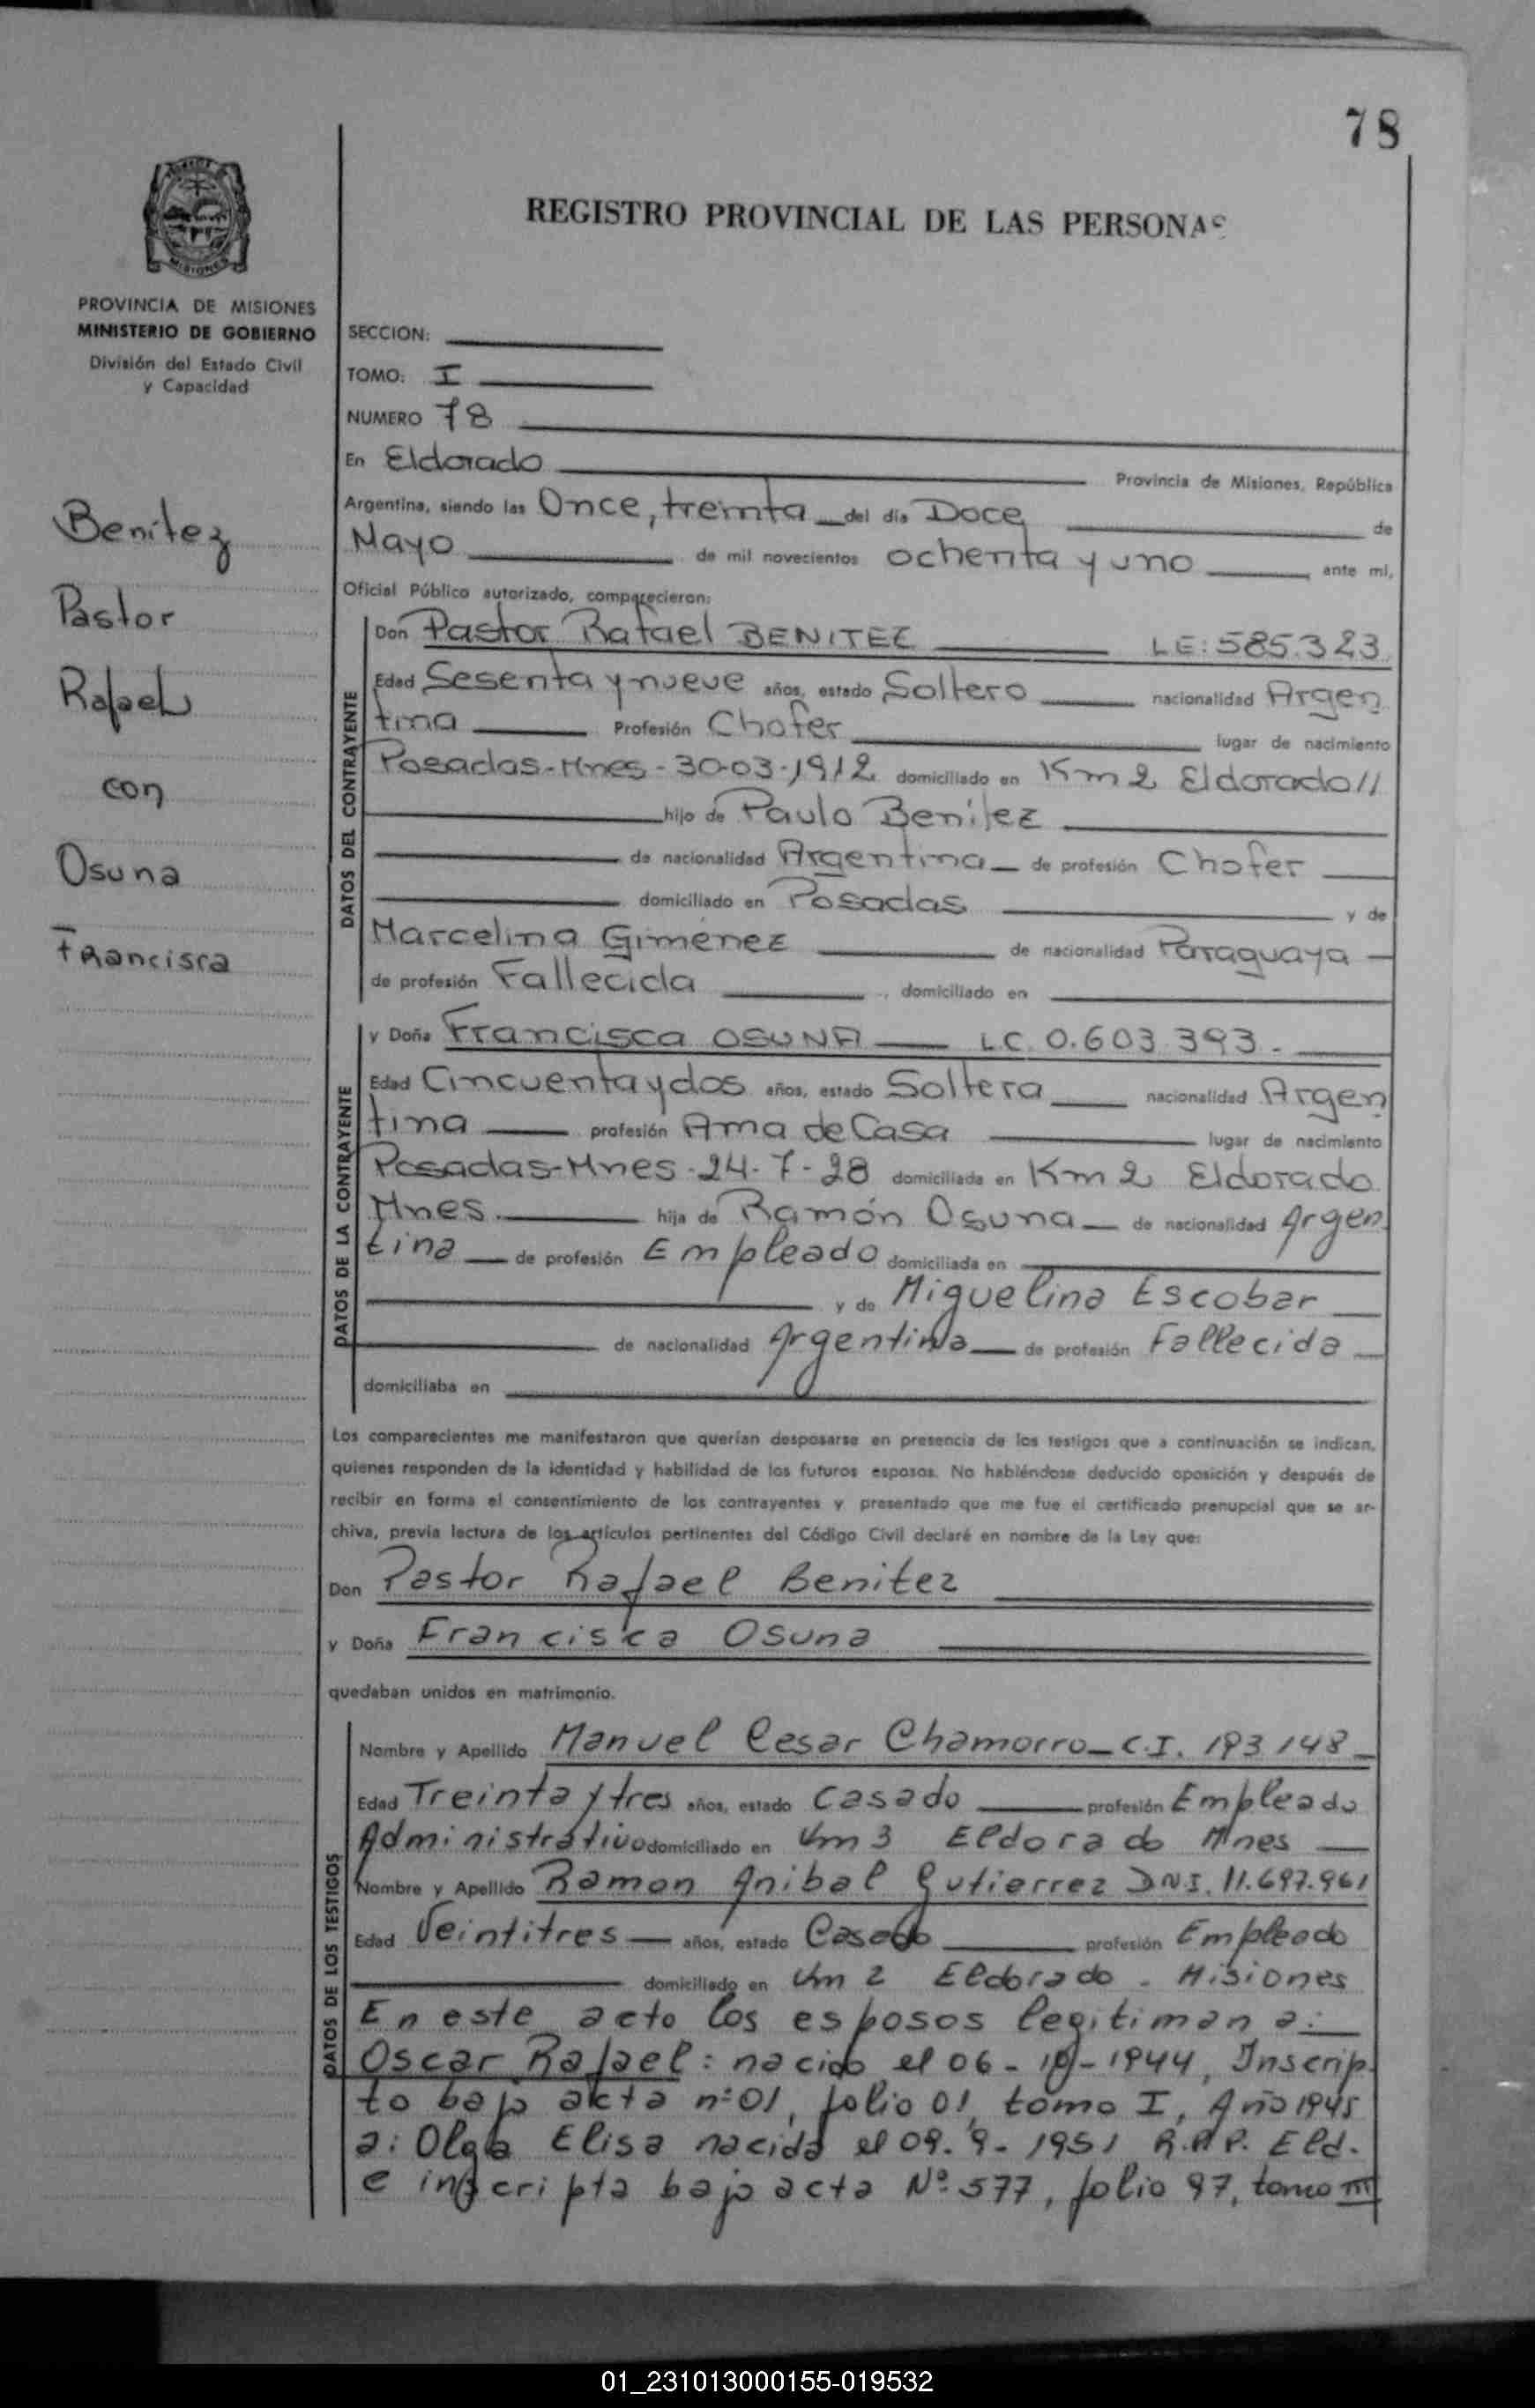 78
REGISTRO PROVINCIAL DE LAS PERSONAS
MISIONES
PROVINCIA DE MISIONES
MINISTERIO DE GOBIERNO
División del Estado Civil
y Capacidad
Benítez
Pastor
Rafael
con
Osuna
Francisca
SECCION:
TOMO: I
NUMERO 78
En Eldorado Provincia de Misiones, República
Argentina, siendo las Once, treinta del día Doce de
Mayo de mil novecientos ochenta y uno ante mí,
Oficial Público autorizado, comparecieron:
DATOS DEL CONTRAYENTE
Don Pastor Rafael BENITEZ LE: 585.323
Edad Sesenta y nueve años, estado Soltero nacionalidad Argen
tina Profesión Chofer lugar de nacimiento
Posadas-Mnes-30-03-1912 domiciliado en Km 2 Eldorado//
hijo de Paulo Benítez
de nacionalidad Argentina de profesión Chofer
domiciliado en Posadas y de
Marcelina Giménez de nacionalidad Paraguaya
de profesión Fallecida, domiciliado en
DATOS DE LA CONTRAYENTE
y Doña Francisca OSUNA L.C. 0.603.393.-
Edad Cincuenta y dos años, estado Soltera nacionalidad Argen
tina profesión Ama de Casa lugar de nacimiento
Posadas-Mnes-24-7-28 domiciliada en Km 2 Eldorado
Mnes. hija de Ramón Osuna de nacionalidad Argen
tina de profesión Empleado domiciliada en
y de Miguelina Escobar
de nacionalidad Argentina de profesión Fallecida
domiciliaba en
Los comparecientes me manifestaron que querían desposarse en presencia de los testigos que a continuación se indican,
quienes responden de la identidad y habilidad de los futuros esposos. No habiéndose deducido oposición y después de
recibir en forma el consentimiento de los contrayentes y presentado que me fue el certificado prenupcial que se ar-
chiva, previa lectura de los artículos pertinentes del Código Civil declaré en nombre de la Ley que:
Don Pastor Rafael Benitez
y Doña Francisca Osuna
quedaban unidos en matrimonio.
DATOS DE LOS TESTIGOS
Nombre y Apellido Manuel Cesar Chamorro - C.I. 193148
Edad Treinta y tres años, estado Casado profesión Empleado
Administrativo domiciliado en Km 3 Eldorado Mnes
Nombre y Apellido Ramon Anibal Gutierrez DNI. 11.697.961
Edad Veintitres años, estado Casado profesión Empleado
domiciliado en Km 2 Eldorado - Misiones
En este acto los esposos legitiman a:
Oscar Rafael: nacido el 06-10-1944, Inscrip-
to bajo akta nº01, folio 01, tomo I, Año 1945
a: Olga Elisa nacida el 09-9-1951 R.P.P. Eld.
e inscripta bajo acta Nº 577, folio 97, tomo III
01_231013000155-019532